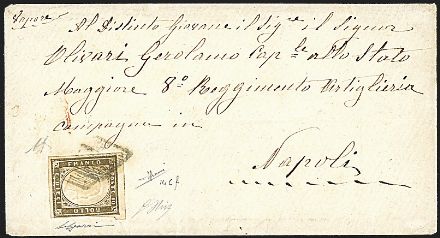 Vapore
Al Distinto Giovane il Sig.re il Signor
Olivari Gerolamo Cap.le allo Stato
Maggiore 8° Reggimento Artiglieria
campagna in
Napoli
FRANCO
BOLLO